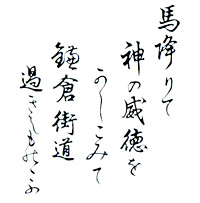 馬降りて
神の威徳を
かしこみて
鎌倉街道
過きしものゝふ